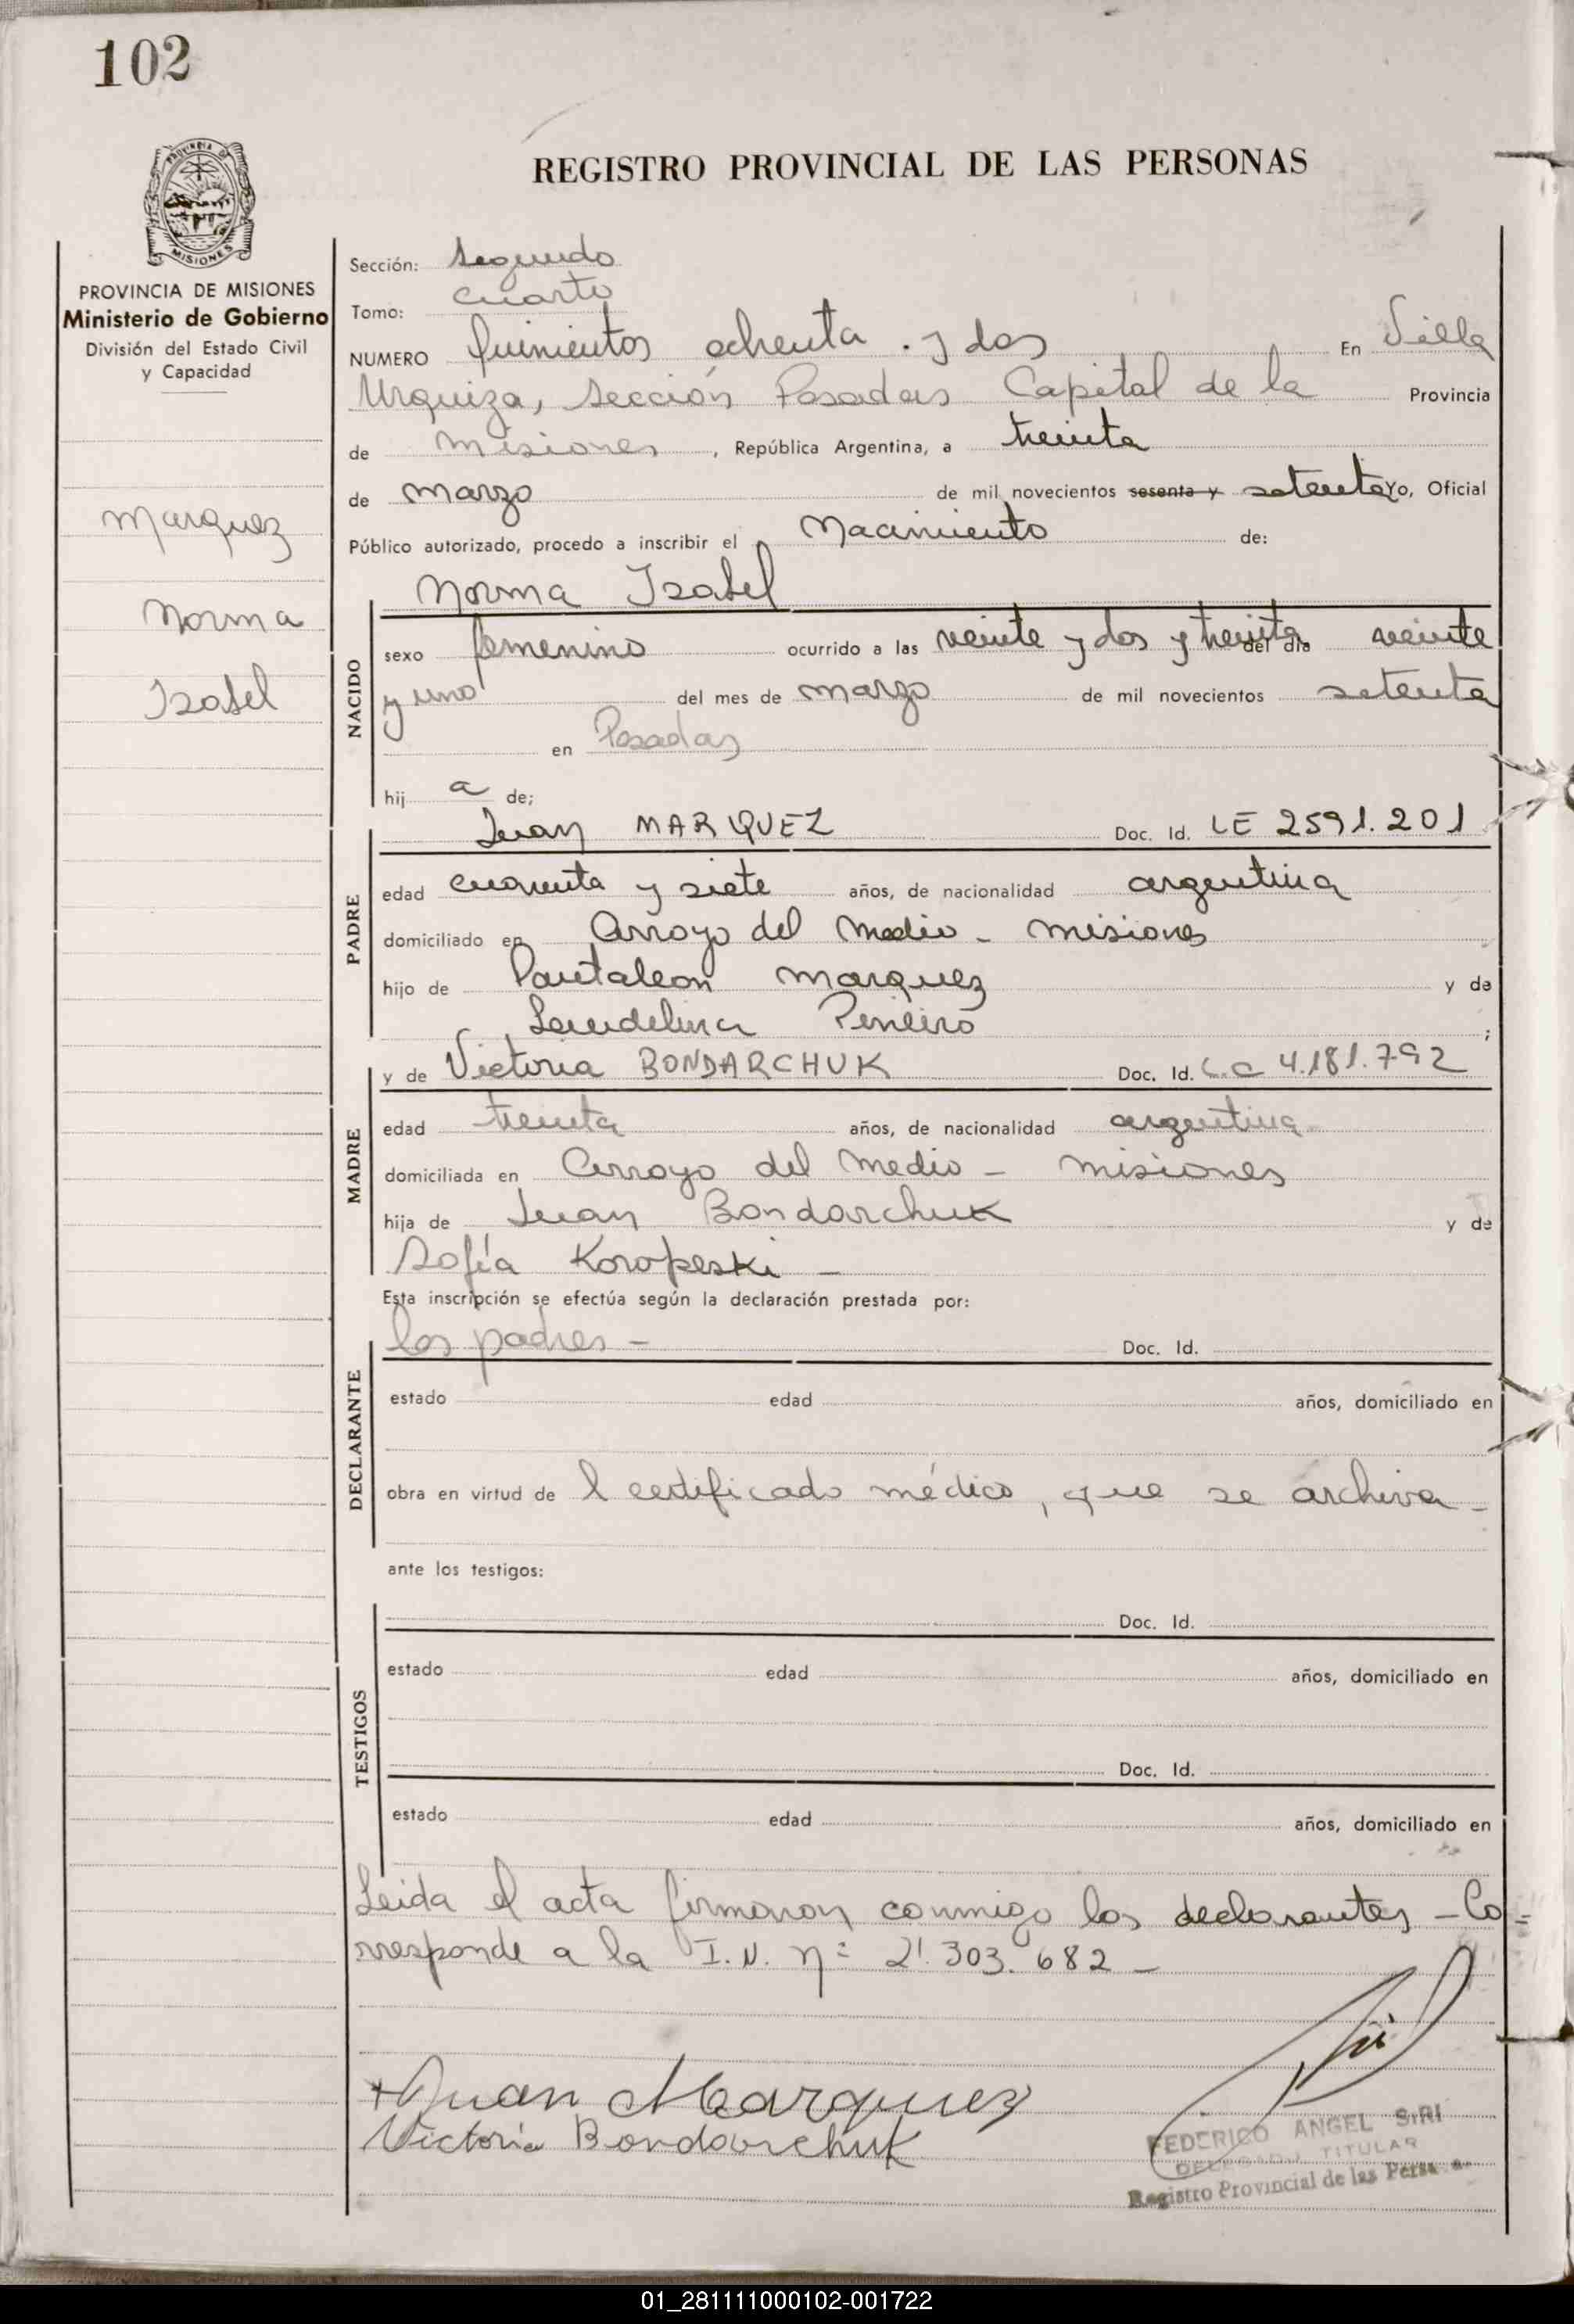 102
PROVINCIA DE
MISIONES
PROVINCIA DE MISIONES
Ministerio de Gobierno
División del Estado Civil
y Capacidad
Marquez
Norma
Isabel
REGISTRO PROVINCIAL DE LAS PERSONAS
Sección: Segundo
Tomo: Cuarto
NUMERO Quinientos ochenta y dos En Villa
Urquiza, Sección Posadas Capital de la Provincia
de Misiones, República Argentina, a treinta
de marzo de mil novecientos sesenta y setenta Yo, Oficial
Público autorizado, procedo a inscribir el Nacimiento de:
Norma Isabel
NACIDO
sexo femenino ocurrido a las veinte y dos y treinta del día veinte
y uno del mes de marzo de mil novecientos setenta
en Posadas
hij a de;
Juan MARQUEZ Doc. Id. LE 2591.201
PADRE
edad cuarenta y siete años, de nacionalidad argentina
domiciliado en Arroyo del Medio - Misiones
hijo de Pantaleon Marquez y de
Pineiro ;
y de Victoria BONDARCHUK Doc. Id. L.C 4.181.792
MADRE
edad treinta años, de nacionalidad argentina
domiciliada en Arroyo del Medio - Misiones
hija de Juan Bondarchuk y de
Sofía Koropeski -
Esta inscripción se efectúa según la declaración prestada por:
los padres - Doc. Id.
DECLARANTE
estado edad años, domiciliado en
obra en virtud de l certificado médico, que se archiva -
ante los testigos:
Doc. Id.
TESTIGOS
estado edad años, domiciliado en
Doc. Id.
estado edad años, domiciliado en
Leida el acta firmaron conmigo los declarantes - Co=
rresponde a la I.N. nº 2.303.682 -
+Juan Marquez
Victoria Bondarchuk
FEDERICO ANGEL SIRI
DELEGADO TITULAR
Registro Provincial de las Personas
01_281111000102-001722